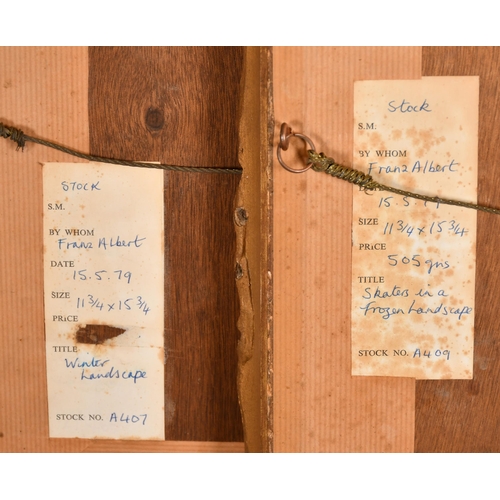 STOCK
S.M.
BY WHOM
Franz Albert
DATE
15.5.79
SIZE 11 3/4 x 15 3/4
PRICE
TITLE
Winter
Landscape
STOCK NO. A407
Stock
S.M.
BY WHOM
Franz Albert
15.5.79
SIZE 11 3/4 x 15 3/4
PRICE
505 gns
TITLE
Skaters in a
frozen Landscape
STOCK NO. A409